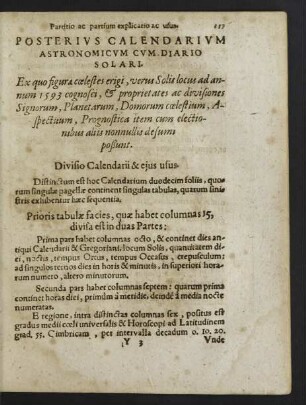 Partitio ac partium explicatio ac usus.
POSTERIVS CALENDARIVM
ASTRONOMICVM CVM DIARIO
SOLARI.
Ex quo figura cœlestes erigi, verus Solis locus ad an-
num 1593 cognosci, & proprietates ac divisiones
Signorum, Planetarum, Domorum cœlestium, A-
spectuum, Prognostica item cum electio-
nibus aliis nonnullis desumi
possunt.
Divisio Calendarii & ejus usus.
Distinctum est hoc Calendarium duodecim foliis, quo-
rum singulæ pagellæ continent singulas tabulas, quarum sini-
stris exhibentur hæc sequentia.
Prioris tabulæ facies, quæ habet columnas 15,
divisa est in duas Partes:
Prima pars habet columnas octo, & continet dies an-
tiqui Calendarii & Gregoriani: locum Solis, quantitatem di-
ei, nocta, tempus Ortus, tempus Occasus, crepusculum:
ad singulos ternos dies in horis & minutis, in superiori hora-
rum numero, altero minutorum.
Secunda pars habet columnas septem: quarum prima
continet horas diei, primùm à meridie, deinde à media nocte
numeratas.
E regione, intra distinctas columnas sex, positus est
gradus medii cœli universalis & Horoscopi ad Latitudinem
grad. 55. Cimbricam, per intervalla decadum 0. 10. 20.
Y 3 Vnde